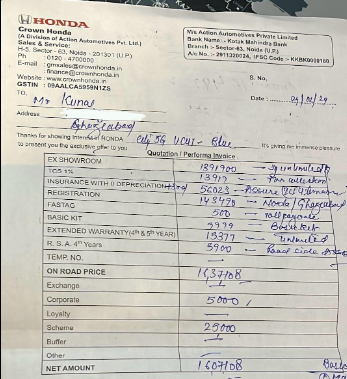 HONDA
Crown Honda
(A Division of Action Automotives Pvt. Ltd.)
Sales & Service:
H-5, Sector- 63, Noida - 201301 (U.P)
Ph : 0120 - 4700000
E-mail : gmsales@crownhonda.in
: finance@crownhonda.in
Website : www.crownhonda.in
GSTIN : 09AALCA5959N1ZS
M/s Action Automotives Private Limited
Bank Name:- Kotak Mahindra Bank
Branch :- Sector-63, Noida (U.P.)
A/c No.:- 2911320024, IPSC Code :- KKBK0000180
S. No.
TO,
Mr Kunal
Date :
Address
Ghaziabad
Thanks for showing interest in HONDA City 5G V CVT - Blue It's giving me immence pleasure
to present you the exclusive offer to you
Quotation / Performa Invoice
EX SHOWROOM 1391900
TCS 1% 13919
INSURANCE WITH 0 DEPRECIATION 56023
REGISTRATION 148490 Noida / Ghaziabad
FASTAG 500
BASIC KIT 5999 Basic kit
EXTENDED WARRANTY (4th & 5th YEAR) 15377 unlimited
R. S. A. 4th Years 5900 Road side
TEMP. NO. —
ON ROAD PRICE 1637108
Exchange —
Corporate 5000/
Loyalty —
Scheme 25000
Buffer —
Other
NET AMOUNT 1607108